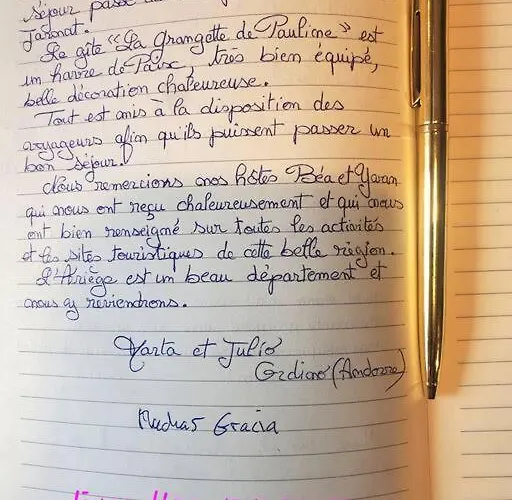 séjour passé
Le gîte "La Grangette de Pauline" est
un havre de Paix, très bien équipé,
belle décoration chaleureuse.
Tout est mis à la disposition des
voyageurs afin qu'ils puissent passer un
bon séjour.
Nous remercions nos hôtes Béa et Yavan
qui nous ont reçu chaleureusement et qui nous
ont bien renseigné sur toutes les activités
et les sites touristiques de cette belle région.
L'Ariège est un beau département et
nous y reviendrons.
Marta et Julio
(Andorre)
Muchas Gracia